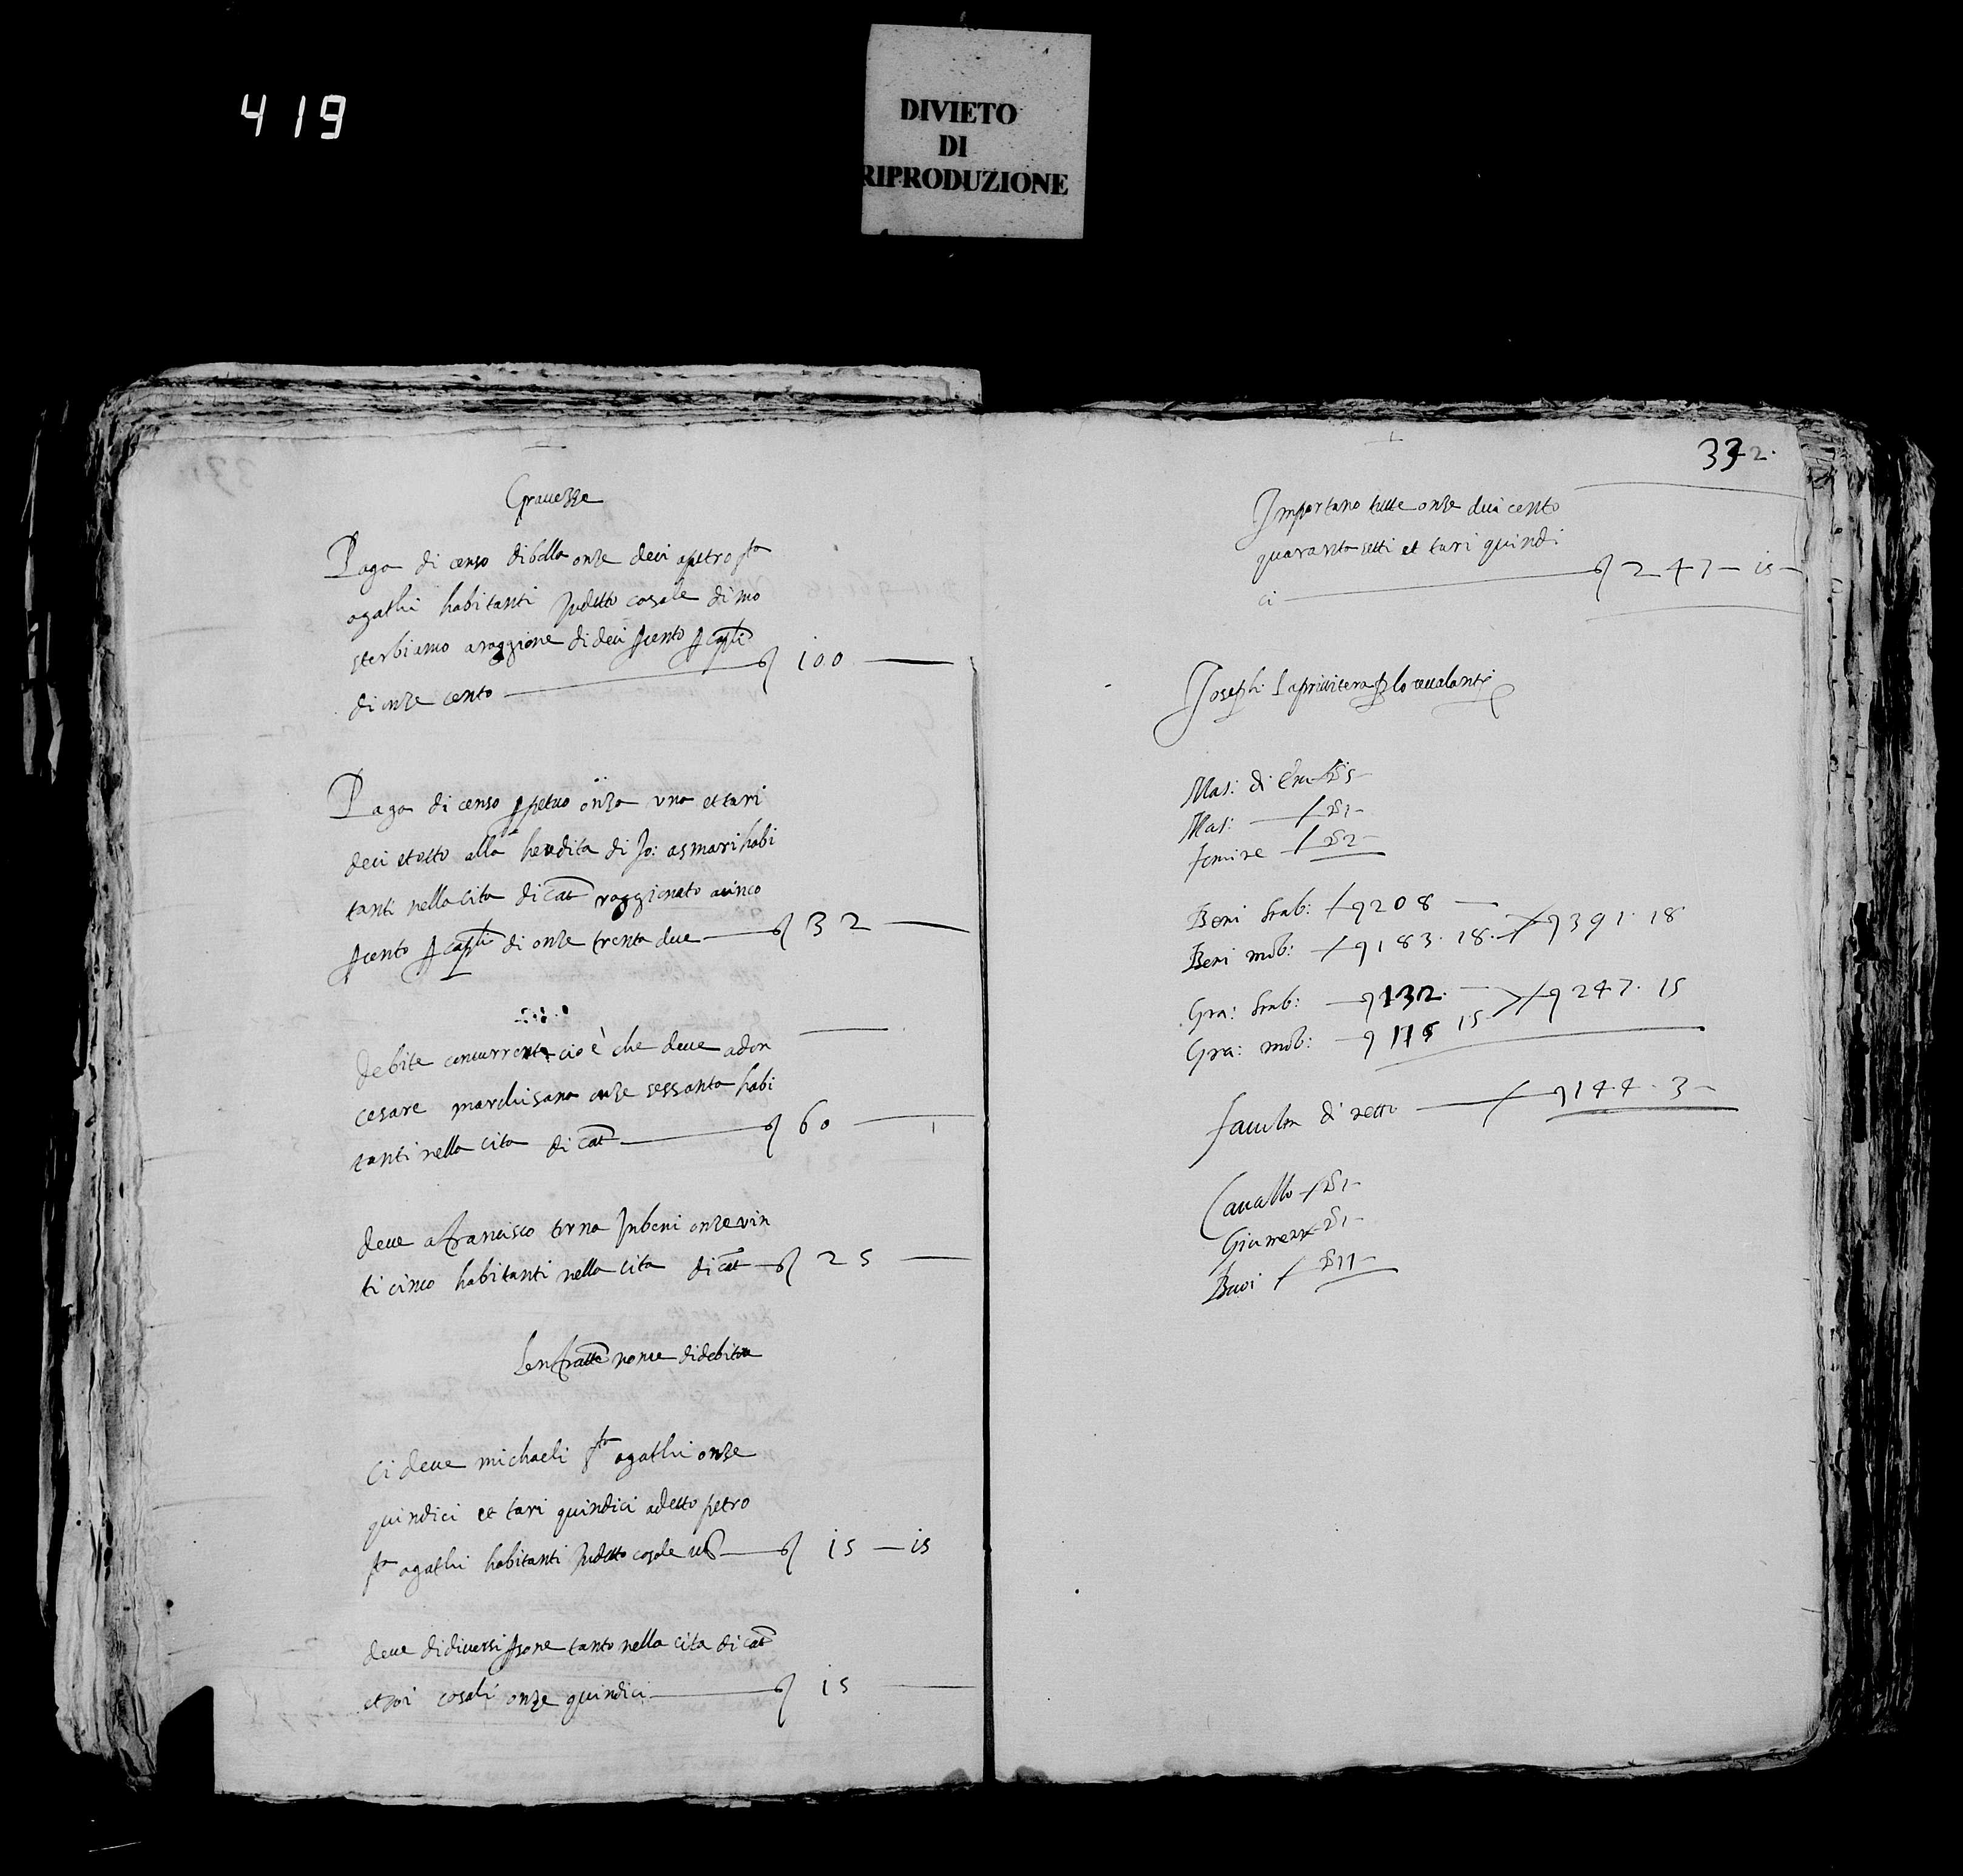 419
DIVIETO
DI
RIPRODUZIONE
Gravezze
Paga di censo di bolla onze deci a petro s.ta
agathi habitanti in detto casale di mo
sterbianco a raggione di deci p cento p cap.li
di onze cento 100
Paga di censo ppetuo onza una et tari
deci et otto alla heredita di Jo: asmari habi
tanti nella cita di cat. raggionato a cinco
p cento p cap.li di onze trenta due 32
debite concurrente cio è che deve a don
cesare marchisana onze sessanta habi
tanti nella cita di cat. 60
deve a francisco terna onze vin
ti cinco habitanti nella cita di cat. 25
nome di debito
Ci deve michaeli s.ta agathi onze
quindici et tari quindici a detto petro
s.ta agathi habitanti in detto casale 15 — 15
deve di diversi psone tanto nella cita di cat.
et soi casali onze quindici 15
332.
Importano tutte onze dui cento
quaranta setti et tari quindi
ci 247 — 15
Joseph la privitera
Mas: di
Mas: n. 1
femine n. 2
Beni stab: 208
Beni mob: 183. 18. 391. 18
Gra: stab: 132.
Gra: mob: 115 15 247. 15
faculta di netto 144. 3
Cavallo n. 1
Giumenta n. 1
Bavi n. 11